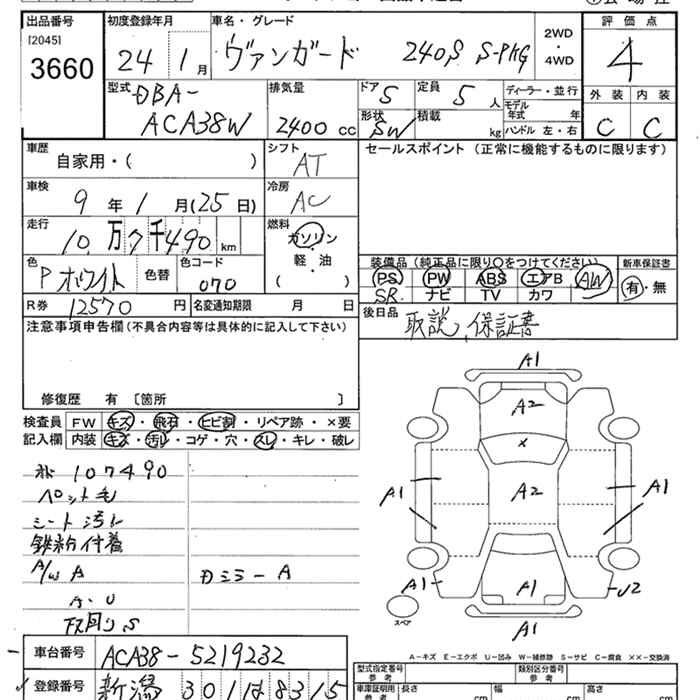 出品番号 [2045] 3660
初度登録年月 24 1月
車名・グレード ヴァンガード 240S S-PKG
2WD・4WD
評価点 4
外装 C 内装 C
型式 DBA-ACA38W
排気量 2400 cc
ドア 5 定員 5人
形状 SW 積載 kg
ディーラー・並行
モデル年式 年
ハンドル 左・右
車歴 自家用・( )
シフト AT
セールスポイント (正常に機能するものに限ります)
車検 9年1月(25日)
冷房 AC
走行 10万7千490 km
燃料 ガソリン・軽・油 ( )
色 Pホワイト 色替 色コード 070
装備品 (純正品に限り○をつけてください) 新車保証書
PS PW ABS エアB AW 有・無
SR ナビ TV カワ
R券 12570円 名変通知期限 月 日
後日品 取説、保証書
注意事項申告欄 (不具合内容等は具体的に記入して下さい)
修復歴 有 〔箇所 〕
検査員 FW キズ・飛石・ヒビ割・リペア跡・×要
記入欄 内装 キズ・汚レ・コゲ・穴・スレ・キレ・破レ
107490
ペット毛
シート汚レ
鉄粉付着
A/W A
Dミラー A
A・U
下廻りS
A1
A2
×
A1 A2 A1
A1 A1 U2
スペア
A1
A-キズ E-エクボ U-凹み W-補修跡 S-サビ C-腐食 ××-交換済
車台番号 ACA38-5219232
型式指定番号 参考 類別区分番号 参考
登録番号 新潟 301は8315
車庫証明用 参考 長さ cm 幅 cm 高さ cm